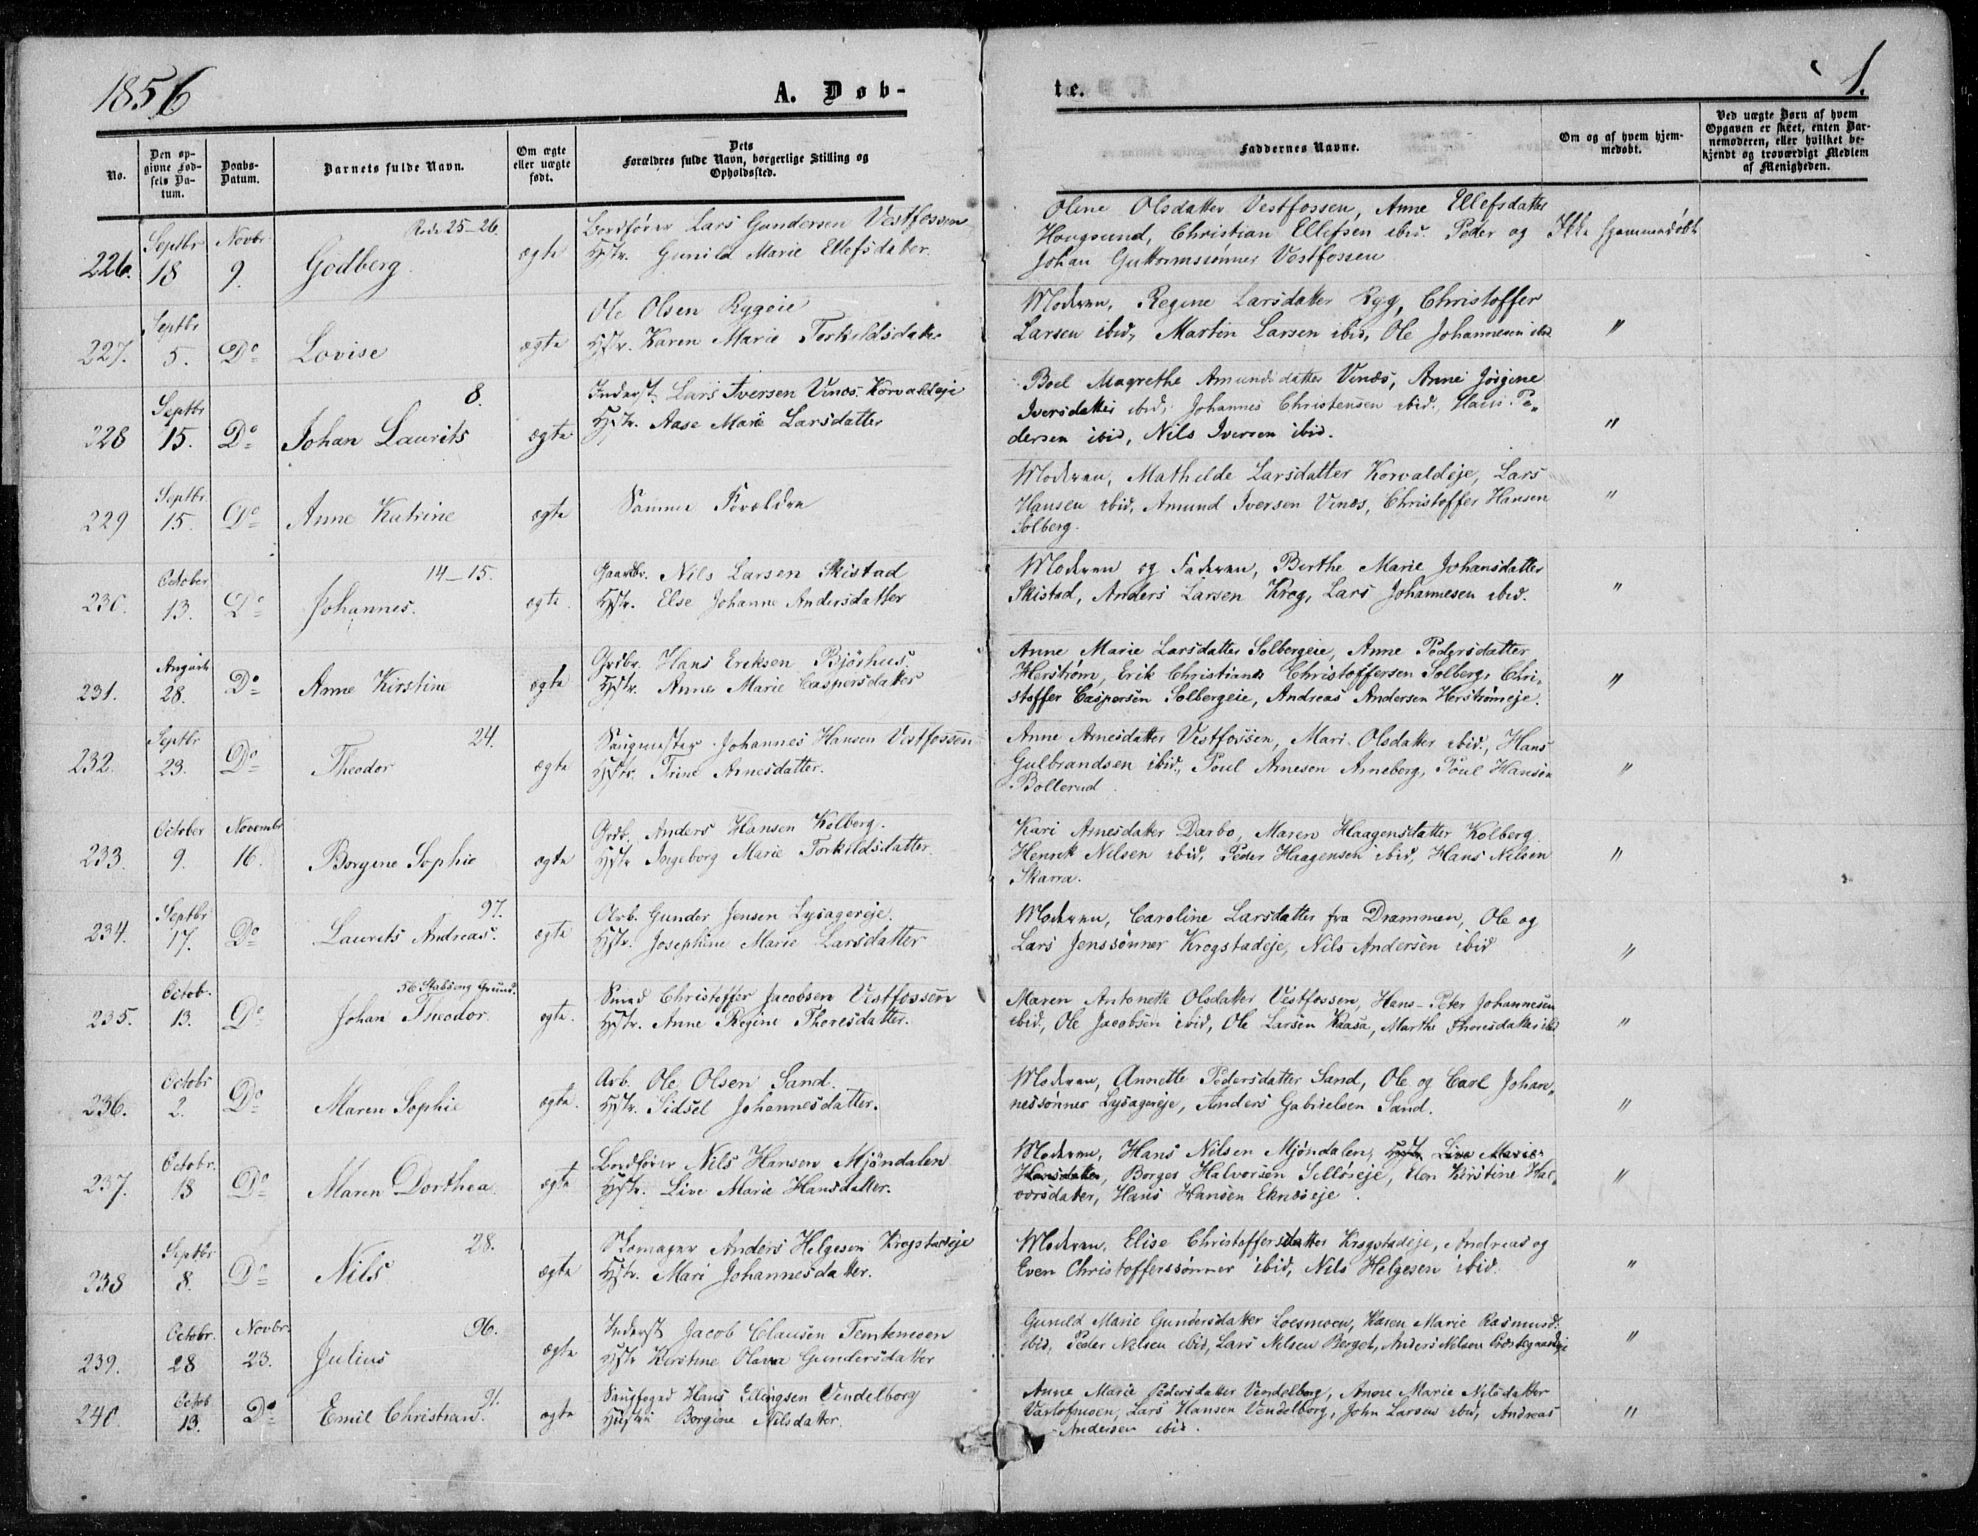 1856
A. Døb-
te.
1.
No.
Den op-
givne Fød-
sels Da-
tum.
Daabs-
Datum.
Barnets fulde Navn.
Om ægte
eller uægte
født.
Dets
Forældres fulde Navn, borgerlige Stilling og
Opholdssted.
Faddernes Navne.
Om og af hvem hjem-
medøbt.
Ved uægte Børn af hvem
Opgaven er skeet, enten Bar-
nemoderen, eller hvilket be-
kjendt og troværdigt Medlem
af Menigheden.
226. Septbr 18 Novbr. 9. Godberg. 25-26. ægte
Bordfører Lars Gundersen Vestfossen
Hstr. Gunild Marie Ellefsdatter.
Oline Olsdatter Vestfossen, Anne Ellefsdatter
Hougsund, Christian Ellefsen ibid. Peder og
Johan Guttormssønner Vestfossen
Ikke hjemmedøbt
227. Septbr 5. Do Lovise ægte
Ole Olsen Rygeie
Hstr. Karen Marie Torkildsdatter
Moderen, Regine Larsdatter Ryg, Christoffer
Larsen ibid, Martin Larsen ibid, Ole Johannesen ibid
"
228 Septbr 15. Do Johan Laurits 8. ægte
Inderst. Lars Iversen Vinæs. Korvaldeje
Hstr. Aase Marie Larsdatter
Boel Magrethe Amundsdatter Vinæs, Anne Jørgine
Iversdatter ibid, Johannes Christensen ibid, Hans Pe-
dersen ibid, Nils Iversen ibid.
"
229 Septbr. 15. Do Anne Katrine ægte
Samme Forældre
Moderen, Mathilde Larsdatter Korvaldeje, Lars
Hansen ibid, Amund Iversen Vinæs, Christoffer Hansen
Solberg.
"
230. October 13. Do Johannes. 14-15. ægte.
Gaardbr. Nils Larsen Skistad
Hstr. Else Johanne Andersdatter
Moderen og Faderen, Berthe Marie Johansdatter
Skistad, Anders Larsen Krog, Lars Johannesen ibid.
"
231. August 28. Do Anne Kirstine ægte
Grdbr. Hans Eriksen Bjørhus.
Hstr. Anne Marie Caspersdatter
Anne Marie Larsdatter Solbergeie, Anne Pedersdatter
Herstrøm, Erik Christians Christoffersen Solberg, Chri-
stoffer Caspersen Solbergeie, Andreas Andersen Herstrømeje.
"
232. Septbr 23. Do Theodor 24. ægte
Saugmester Johannes Hansen Vestfossen
Hstr. Trine Arnesdatter.
Anne Arnesdatter Vestfossen, Mari Olsdatter ibid., Hans
Gulbrandsen ibid., Poul Arnesen Arneberg, Poul Hansen
Bollerud
"
233. October 9. Novembr 16. Borgine Sophie ægte
Grdb. Anders Hansen Kolberg.
Hstr Ingeborg Marie Torkildsdatter.
Kari Arnesdatter Darbo, Maren Haagensdatter Kolberg
Henrik Nilsen ibid, Peder Haagensen ibid, Hans Nilsen
Skarra.
"
234. Septbr 17. Do Laurits Andreas. 97. ægte
Arb. Gunder Jensen Lysagereje.
Hstr. Josephine Marie Larsdatter
Moderen, Caroline Larsdatter fra Drammen, Ole og
Lars Jenssønner Krogstadeje, Nils Andersen ibid
"
235. Octob. 13. Do Johan Theodor. 56 Stabseng Grund. ægte.
Smed Christoffer Jacobsen Vestfossen
Hstr. Anne Regine Thoresdatter.
Maren Antonette Olsdatter Vestfossen, Hans-Peter Johannesen
ibid., Ole Jacobsen ibid, Ole Larsen Kaasa, Marthe Thoresdatter ibid
"
236. Octobr 2. Do Maren Sophie ægte.
Arb. Ole Olsen Sand.
Hstr. Sidsel Johannesdatter.
Moderen, Annette Pedersdatter Sand, Ole og Carl Johan-
nessønner Lysagereje, Anders Gabrielsen Sand.
"
237. Octobr. 18 Do Maren Dorthea ægte
Bordfører Nils Hansen Mjøndalen
Hstr. Live Marie Hansdatter.
Moderen, Hans Nilsen Mjøndalen, Hstr. Live Marie
Hansdatter, Borger Halvorsen Selløreje, Elen Kirstine Hal-
vorsdatter, Hans Hansen Eknæseje
"
238 Septbr 8. Do Nils 28. ægte
Skomager Anders Helgesen Krogstadeje
Hstr. Mari Johannesdatter.
Moderen, Elise Christoffersdatter Krogstadeje, Andreas og
Even Christofferssønner ibid, Nils Helgesen ibid.
"
239. Octobr. 28 Novbr. 23. Julius 96. ægte
Inderst Jacob Clausen Temtemoen
Hstr Kirstine Olava Gundersdatter
Gunild Marie Gundersdatter Loesmoen, Karen Marie Rasmusd.
ibid, Peder Nilsen ibid, Lars Nilsen Berget, Anders Nilsen
"
240. Octob 13. Do Emil Christian. 91. ægte
Saugfoged Hans Ellingsen Vendelborg
Hustru Borgine Nilsdatter.
Anne Marie Pedersdatter Vendelborg, Anne Marie Nilsdatter
Lars Hansen Vendelborg, John Larsen ibid, Andreas
Andersen ibid.
"